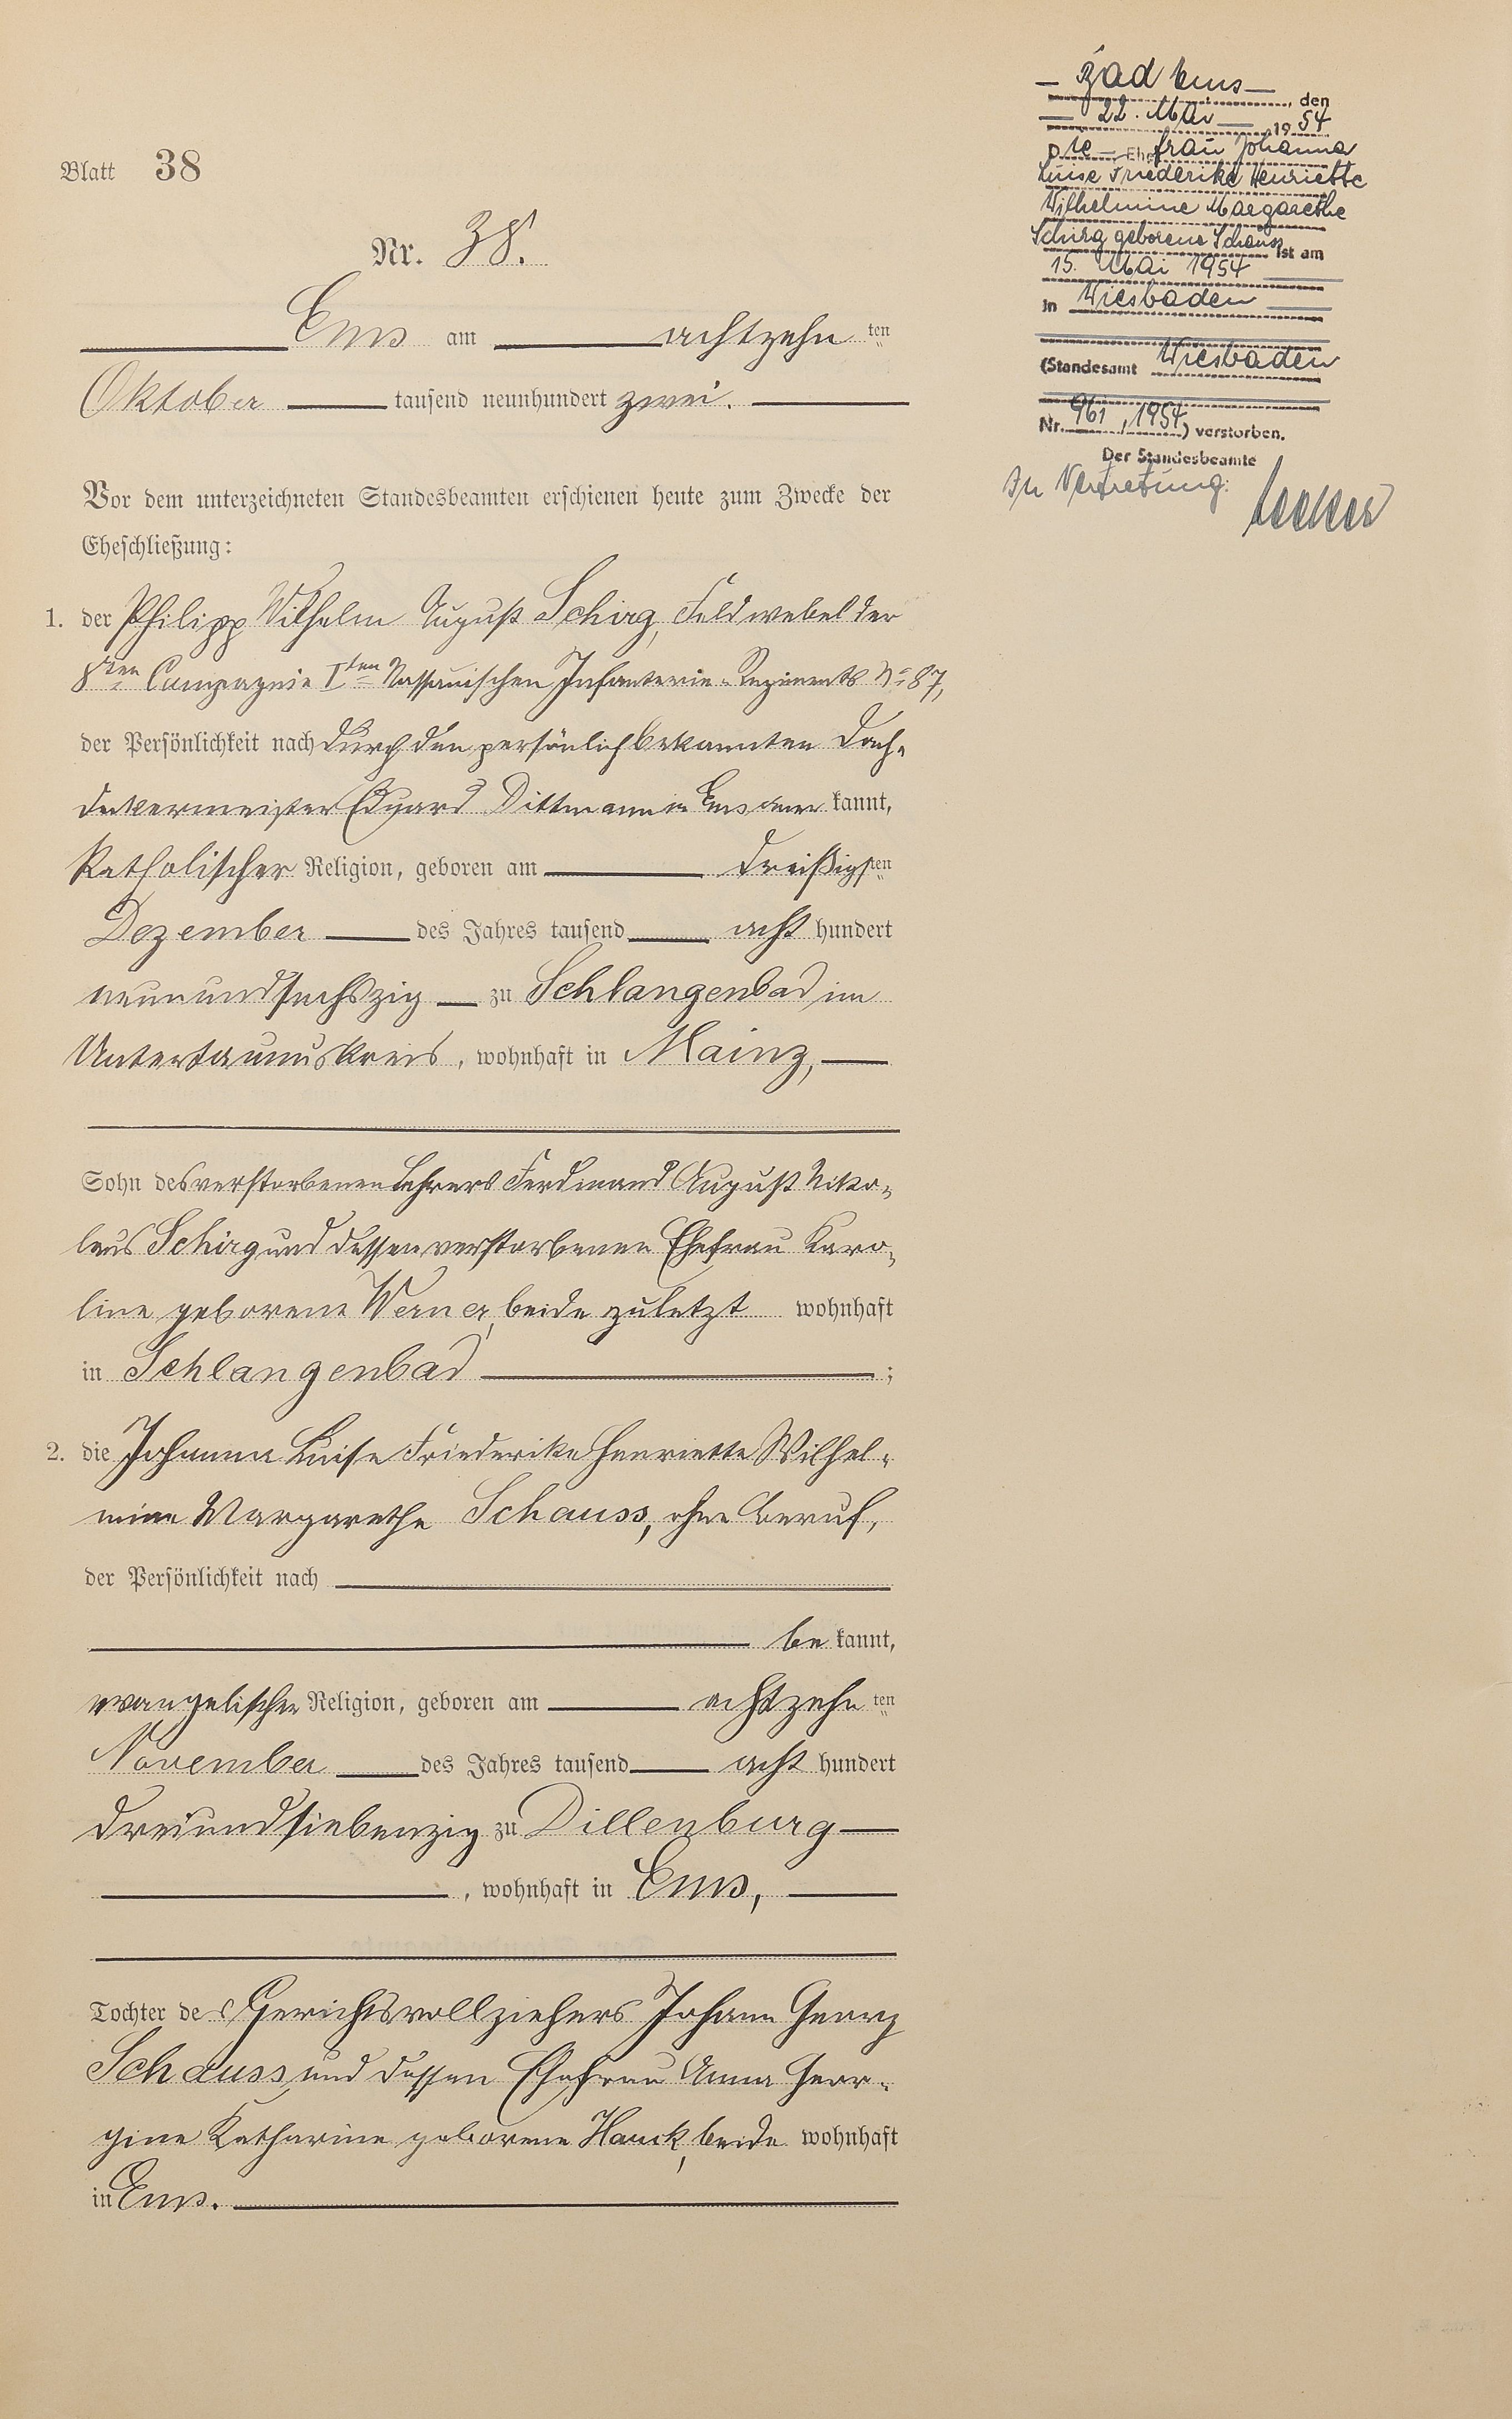 Blatt 38
Nr. 38.
Ems am achtzehn ten
Oktober tausend neunhundert zwei.
Vor dem unterzeichneten Standesbeamten erschienen heute zum Zwecke der
Eheschließung:
1. der Philipp Wilhelm August Schirg, Feldwebel der
8ten Compagnie Iten Nassauischen Infanterie-Regiments No 87,
der Persönlichkeit nach durch den persönlich bekannten Dach-
deckermeister Eduard Dittmann in Ems aner kannt,
katholischer Religion, geboren am dreißigsten
Dezember des Jahres tausend acht hundert
neunundsechszig zu Schlangenbad im
Untertaunuskreis, wohnhaft in Mainz,
Sohn des verstorbenen Lehrers Ferdinand August Niko-
laus Schirg und dessen verstorbenen Ehefrau Karo-
line geborene Werner, beide zuletzt wohnhaft
in Schlangenbad ;
2. die Johanna Luise Friederike Henriette Wilhel-
mine Margarethe Schauss, ohne Beruf,
der Persönlichkeit nach
be kannt,
evangelischer Religion, geboren am achtzehn ten
November des Jahres tausend acht hundert
dreiundsiebenzig zu Dillenburg
, wohnhaft in Ems,
Tochter des Gerichtsvollziehers Johann Georg
Schauss und dessen Ehefrau Anna Geor-
gine Katharine geborene Hauck, beide wohnhaft
in Ems.
Bad Ems, den
22. Mai 1954
Die Ehefrau Johanna
Luise Friederike Henriette
Wilhelmine Margarethe
Schirg geborene Schauss ist am
15. Mai 1954
in Wiesbaden
(Standesamt Wiesbaden
Nr. 961 / 1954) verstorben.
Der Standesbeamte
In Vertretung: